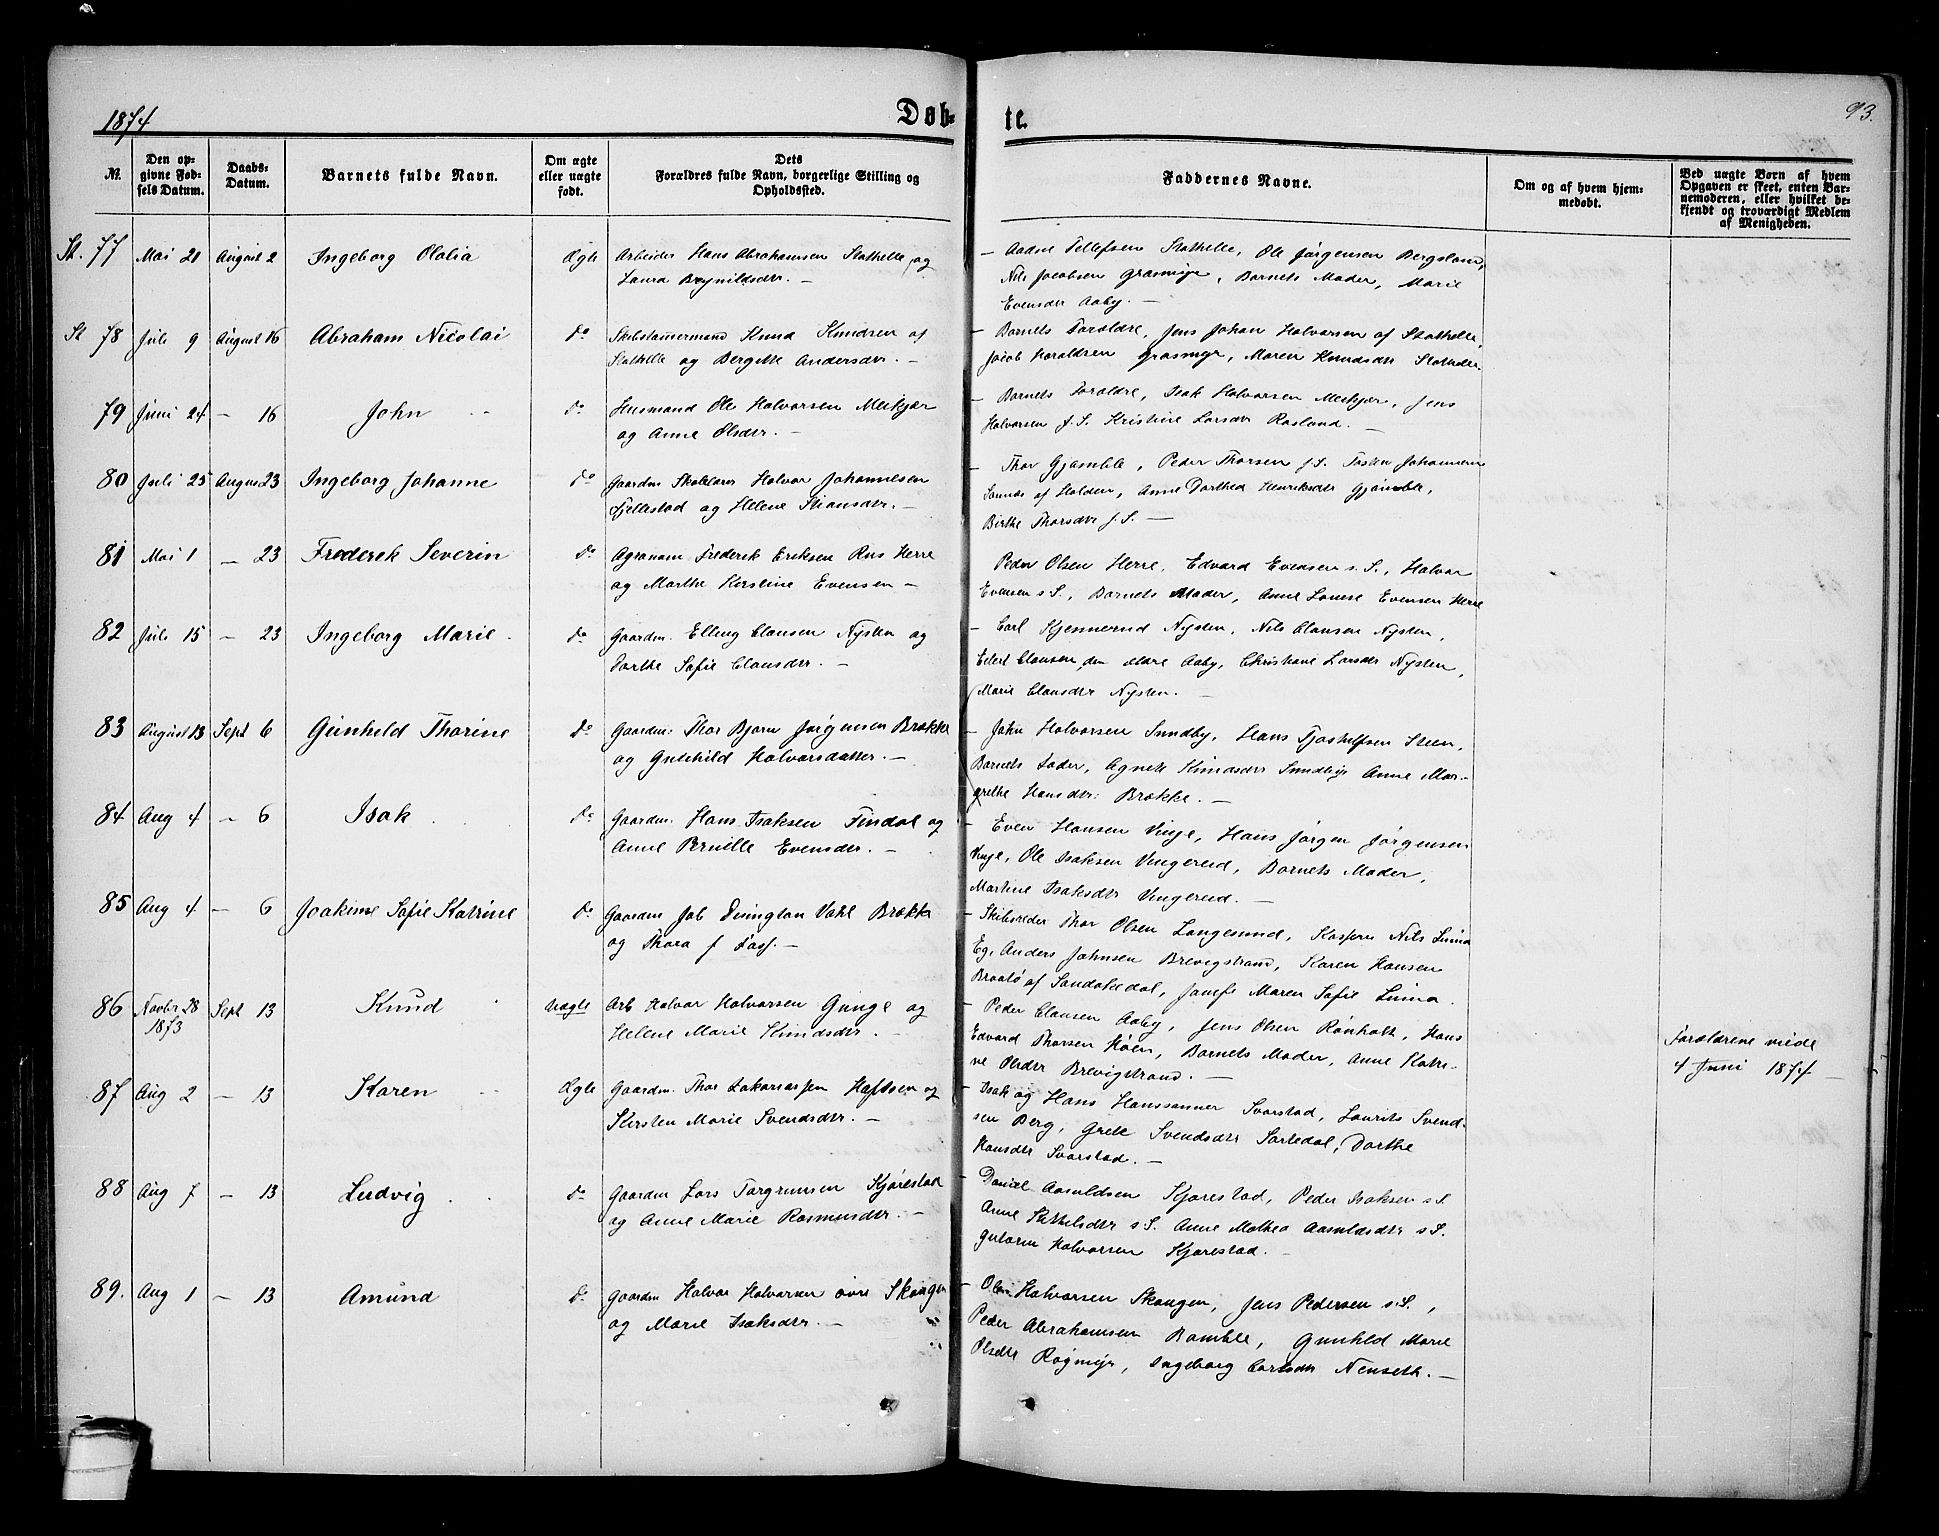 1874
Døb-
te.
93.
№.
Den op-
givne Fød-
sels Datum.
Daabs-
Datum.
Barnets fulde Navn.
Om ægte
eller uægte
født.
Dets
Forældres fulde Navn, borgerlige Stilling og
Opholdssted.
Faddernes Navne.
Om og af hvem hjem-
medøbt.
Ved uægte Børn af hvem
Opgaven er skeet, enten Bar-
nemoderen, eller hvilket be-
kjendt og troværdigt Medlem
af Menigheden.
St. 77 Mai 21 August 2 Ingeborg Olalia Ægte Arbeider Hans Abrahamsen Stathelle og
Laura Brynildsdtr. —
— Aadne Tellefsen Stathelle, Ole Jørgensen Bergsland,
Nils Jacobsen Grasmyr, Barnets Moder, Marie
Evensdtr Aaby. —
St 78 Juli 9 August 16 Abraham Nicolai do Skibstømmermand Knud Knudsen af
Stathelle og Bergitte Andersdtr. —
— Barnets Forældre, Jens Johan Halvorsen af Stathelle,
Jacob Haraldsen Grasmyr, Maren Knudsdtr Stathelle.
79 Juni 24 — 16 John do Husmand Ole Halvorsen Meikjær
og Anne Olsdtr. —
— Barnets Forældre, Isak Halvorsen Meikjær, Jens
Halvorsen f. S. Kristine Larsdtr Rosland. —
80 Juli 25 August 23 Ingeborg Johanne do Gaardm Skolelærer Halvor Johannesen
Fjellestad og Helene Stiansdtr. —
— Thor Gjømble, Peder Thorsen f. S. Johannesen
af Holden, Anne Dorthea Henriksdtr Gjømble,
Birthe Thorsdtr f. S. —
81 Mai 1 — 23 Frederik Severin do Agronom Frederik Eriksen Rus Herre
og Marthe Kirstine Evensen —
Peder Olsen Herre, Edvard Evensen s. S., Halvor
Evensen s S., Barnets Moder, Anne Louise Evensen Herre
82 Juli 15 — 23 Ingeborg Marie. do Gaardm. Elling Clausen Nysten og
Dorthe Sofie Clausdtr. —
— Carl Kjennerud Nysten, Nils Clausen Nysten,
Eilert Clausen den ældre Aaby, Christiane Larsdtr Nysten,
Marie Clausdtr Nysten. —
83 August 13 Sept 6 Gunhild Thorine do Gaardm: Thor Bjørn Jørgensen Brække
og Gunhild Halvorsdatter. —
— John Halvorsen Sundby, Hans Steen,
Barnets Fader, Agnete Knudsdtr Sundby Anne Mar-
grethe Hansdtr: Brække. —
84 Aug 4 — 6 Isak do Gaardm. Hans Isaksen Findal og
Anne Pernille Evensdtr. —
— Even Hansen Vinje, Hans Jørgen Jørgensen
Vinje, Ole Isaksen Vingereid, Barnets Moder,
Martine Isaksdtr Vingereid. —
85 Aug 4 — 6 Joakime Sofie Katrine do Gaardm Job Vahl Brække
og Thora f —
— Skibsreder Thor Olsen Langesund, Nils
Eg, Anders Johnsen Brevigstrand, Karen Hansen
Braatø af Sandøkedal, Maren Sofie
86 Novbr 28
1873 Sept 13 Knud Uægte Arb Halvor Halvorsen Gunge og
Helene Marie Knudsdtr. —
— Peder Clausen Aaby, Jens Olsen Rønholt, Hans
Edvard Thorsen Høen, Barnets Moder, Anne Katri-
ne Olsdtr Brevigstrand. —
Forældrene viede
4 Juni 1874 —
87 Aug 2 — 13 Karen Ægte Gaardm. Thor Zakariassen Haftsen og
Kirsten Marie Svendsdtr. —
— Isak og Hans Hanssønner Svarstad, Laurits Svend-
sen Berg, Grete Svendsdtr Sortedal, Dorthe
Hansdtr Svarstad. —
88 Aug 7 — 13 Ludvig. do Gaardm Lars Torgrimsen Kjørestad
og Anne Marie Rasmusdtr. —
— Daniel Aanuldsen Kjørestad, Peder Isaksen s. S.
Anne Kittelsdtr s S. Anne Mathea Aanuldsdtr s S.
Gutorm Halvorsen Kjørestad. —
89. Aug 1 — 13 Amund do Gaardm Halvor Halvorsen øvre Skougen
og Marie Isaksdtr. —
— Ole Halvorsen Skougen, Jens Pedersen s. S.,
Peder Abrahamsen Bamble, Gunhild Marie
Olsdtr Røgmyr, Ingeborg Carlsdtr Nenseth. —